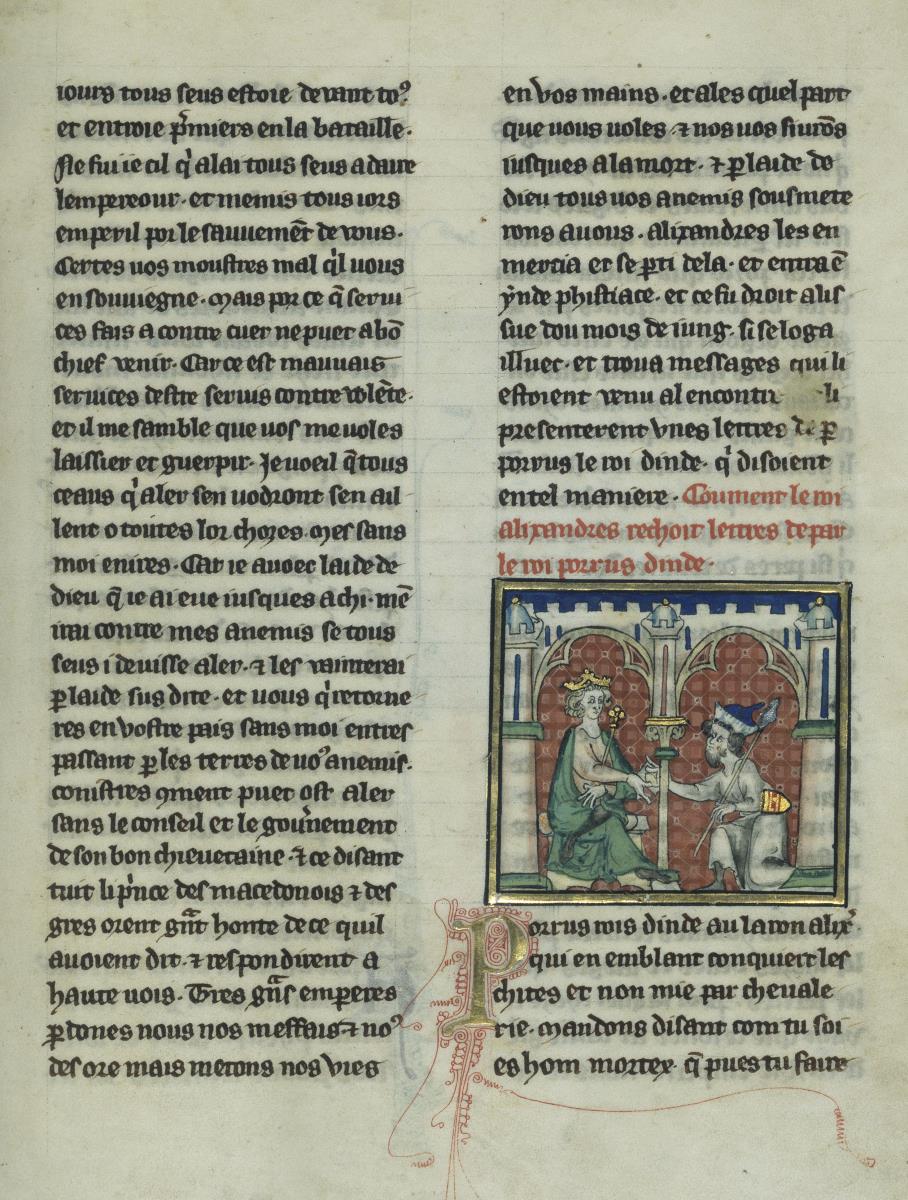 iours tous seus estoie deuant toꝰ
et entroie p̄miers en la bataille·
Ne fui ie cil q̓ alai tous seus a daire
lempereour· et me mis tous iors
em peril por le sauuemēt de vous·
Certes uos moustres mal q̓l uous
en souuiegne· mais por ce q̄ serui
ces fais a contre cuer ne puet a bō
chief venir· Car ce est mauuais
seruices destre seruis contre volēte·
et il me samble que uos me uoles
laissier et guerpir· Je uoeil q̄ tous
ceaus q̓ aler sen uodront sen ail
lent o toutes lor choses mes sans
moi enires· Car ie auoec laide de
dieu q̄ ie ai eue iusques a chi· mē
irai contre mes anemis se tous
seus i deuisse aler· ⁊ les vainterai
ꝑ laide sus dite· et uous q̓ retorne
res en vostre pais sans moi entres
passant ꝑ les terres de uoꝰ anemis·
conistres ꝯment puet ost aler
sans le conseil et le gouṽnement
de son bon chieuetaine· ⁊ ce disant
tuit li p̓nce des macedonois ⁊ des
gres orent gñt honte de ce quil
auoient dit· ⁊ respondirent a
haute uois· Tres gñs emperes
ꝑdones nous nos meffais ⁊ noꝰ
des ore mais metons nos vies
en vos mains· et ales quel part
que uous uoles ⁊ nos uos siurōs
iusques a la mort· ⁊ ꝑ laide de
dieu tous uos anemis sousmete
rons a uous· alixandres les en
mercia et se ꝑti de la· et entra ē
ynde phisiace· et ce fu droit a lis
sue dou mois de iung· si se loga
illuec· et troua messages qui li
estoient venu al encontre li
presenterent vnes lettres de ꝑ
porrus le roi dinde· q̓ disoient
en tel maniere· Coument le roi
alixandres rechoit lettres de par
le roi porrus dinde·
Porrus rois dinde au laron alix̓
qui en emblant conquiert les
chites et non mie par cheuale
rie· mandons disant com tu soi
es hom mortex· q̄ pues tu faire